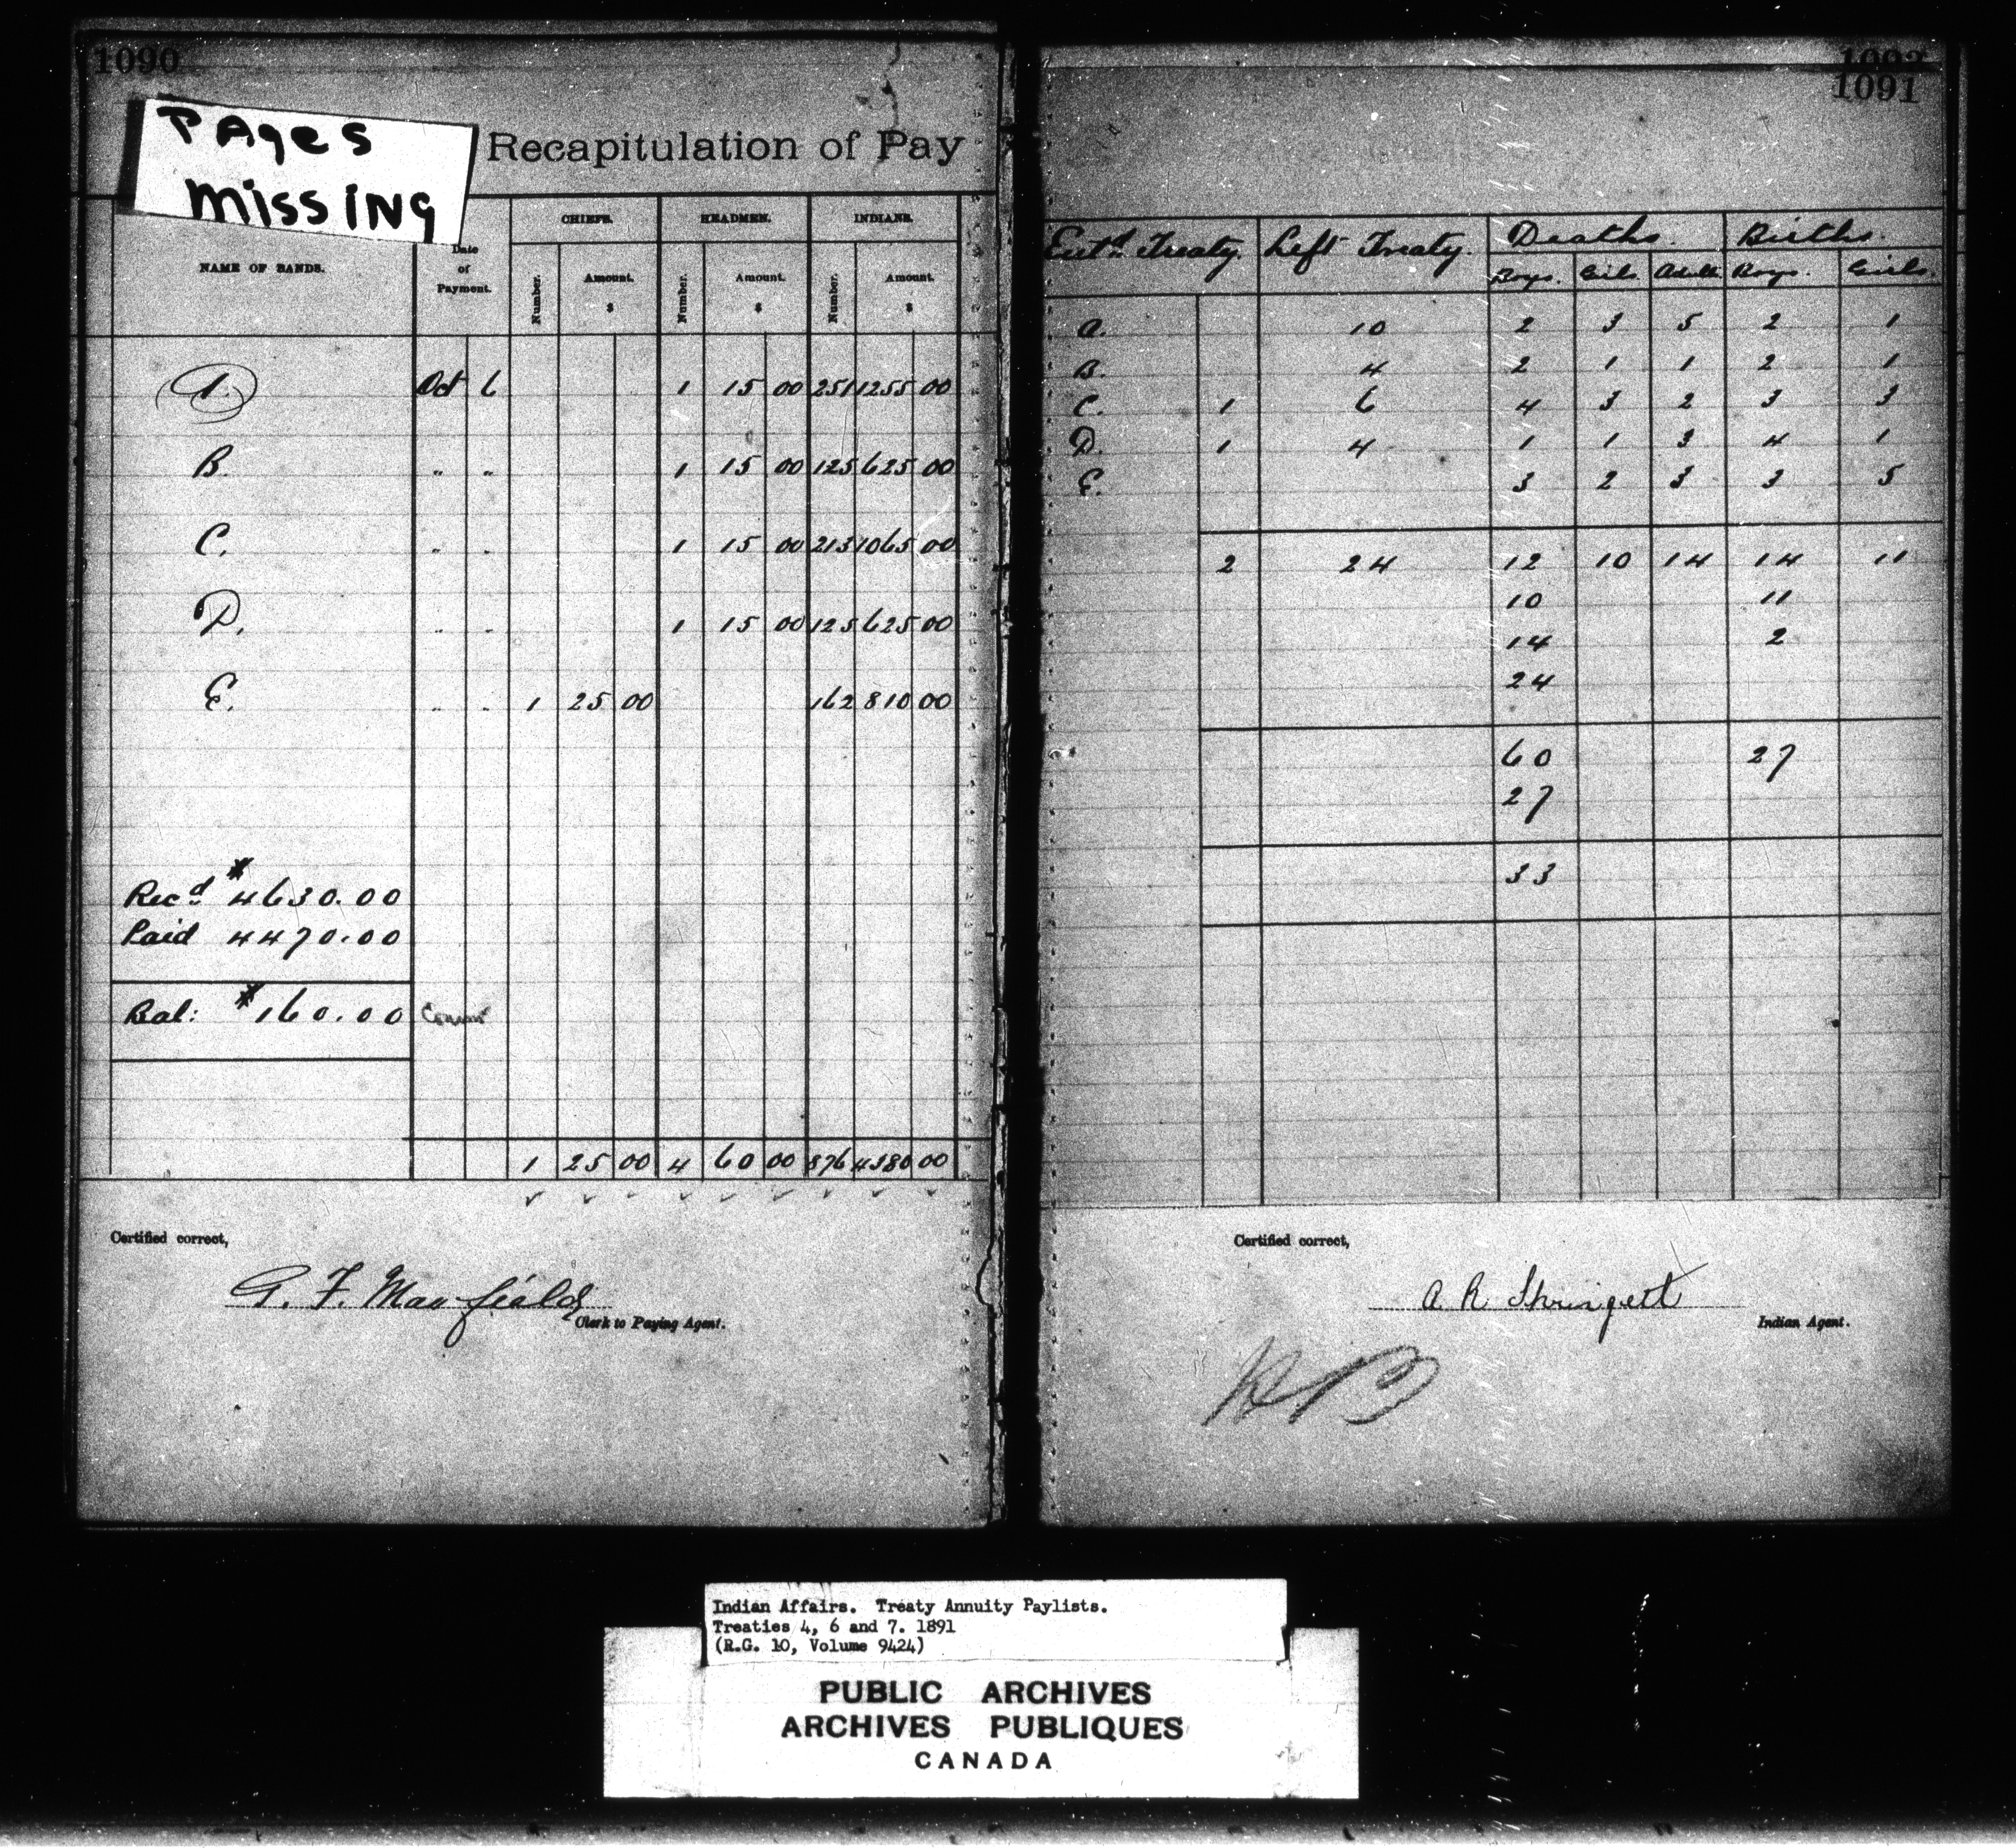 1090
PAges
missing
Recapitulation of Pay
NAME OF BANDS.
Date
of
Payment.
CHIEFS.
HEADMEN.
INDIANS.
Number.
Amount.
$
Number.
Amount.
$
Number.
Amount.
$
A. Oct 6 1 15 00 251 1255 00
B. " " 1 15 00 125 625 00
C. " " 1 15 00 213 1065 00
D. " " 1 15 00 125 625 00
E. " " 1 25 00 162 810 00
Recd $4630.00
Paid 4470.00
Bal: $160.00
1 25 00 4 60 00 876 4380 00
Certified correct,
Clerk to Paying Agent.
1092
1091
Entd Treaty. Left Treaty. Deaths. Births.
Boys. Girls Adults Boys. Girls.
A. 10 2 3 5 2 1
B. 4 2 1 1 2 1
C. 1 6 4 3 2 3 3
D. 1 4 1 1 3 4 1
E. 3 2 3 3 5
2 24 12 10 14 14 11
10 11
14 2
24
60 27
27
33
Certified correct,
Indian Agent.
Indian Affairs. Treaty Annuity Paylists.
Treaties 4, 6 and 7. 1891
(R.G. 10, Volume 9424)
PUBLIC ARCHIVES
ARCHIVES PUBLIQUES
CANADA